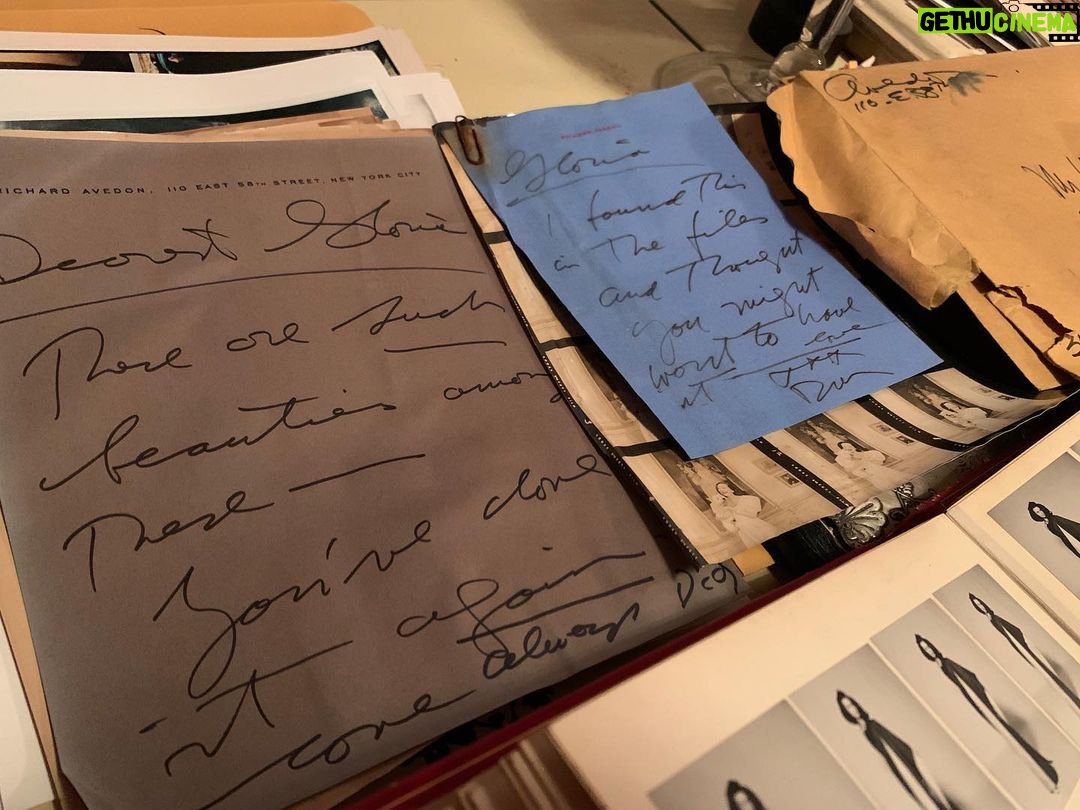 GETHUCINEMA
RICHARD AVEDON, 110 EAST 58TH STREET, NEW YORK CITY
Dearest Gloria
There are such
beauties among
these —
You've done
it again
love always
Gloria
I found this
in the files
and thought
you might
want to have
it — love
Avedon
110 E